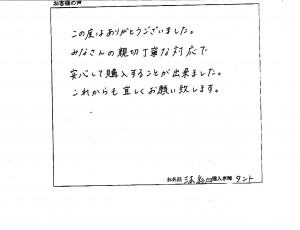 お客様の声
この度はありがとうございました。
みなさんの親切丁寧な対応で
安心して購入することが出来ました。
これからも宜しくお願い致します。
お名前 購入車種 タント